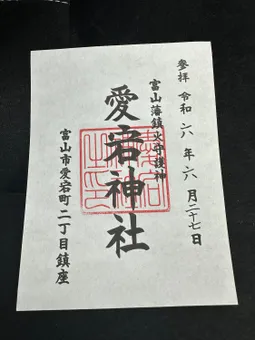 參拜 令和 六 年 六 月 二十七 日
富山藩鎮火守護神
愛宕神社
富山市愛宕町二丁目鎮座